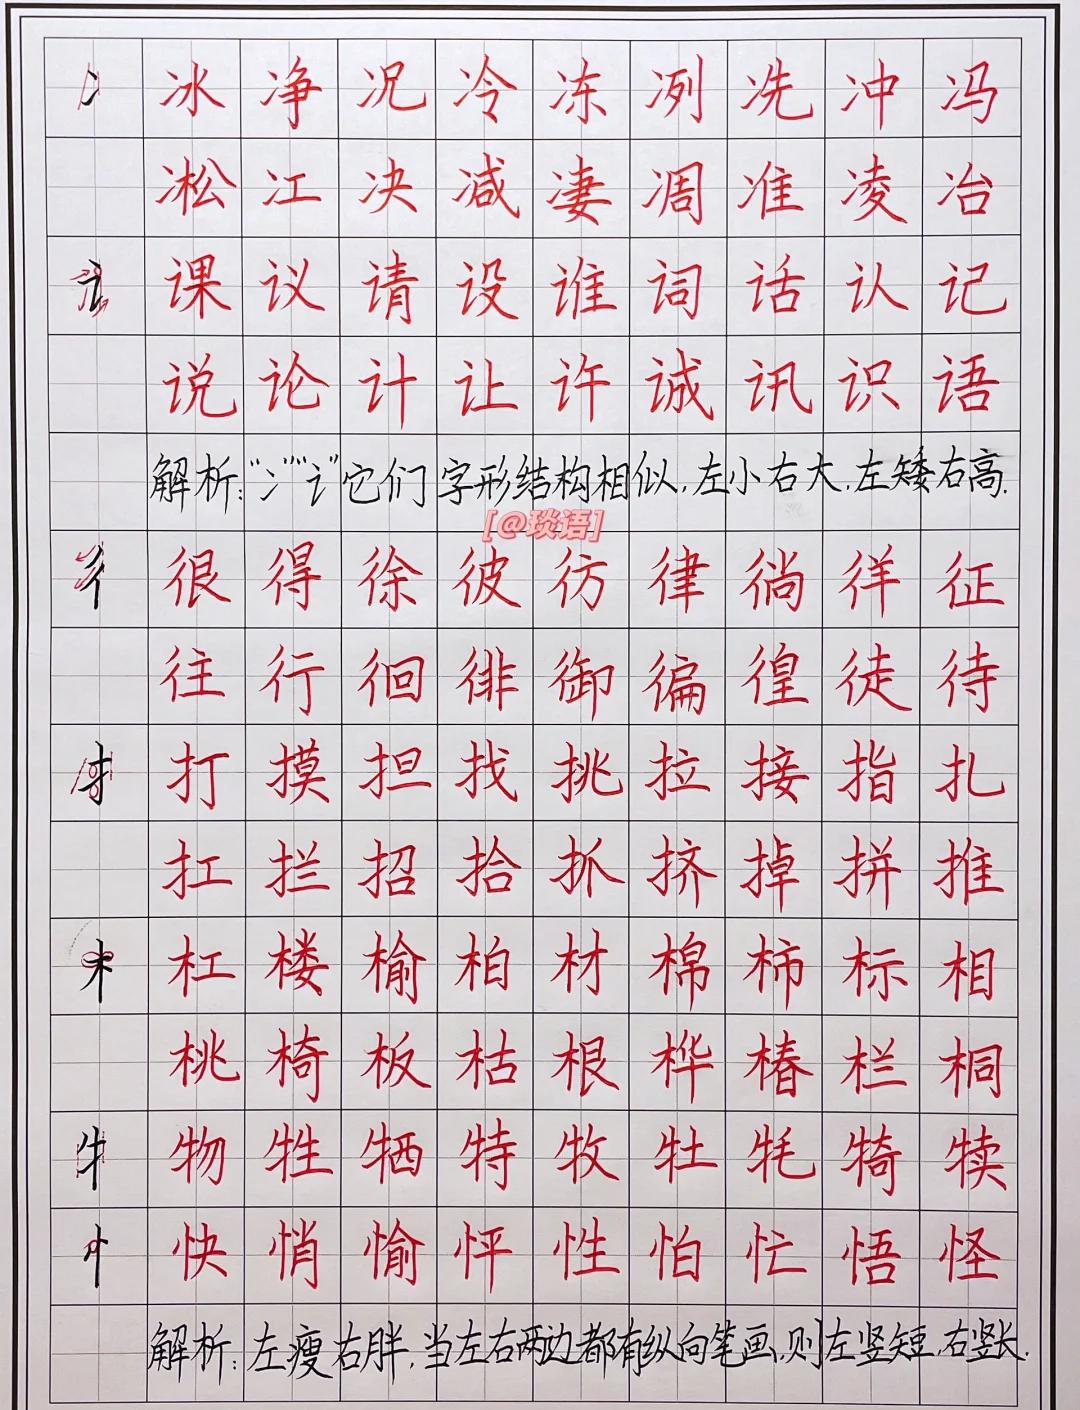 冫冰净况冷冻冽冼冲冯
凇冮决减凄凋准凌冶
讠课议请设谁词话认记
说论计让许诚讯识语
解析:"冫""讠"它们字形结构相似,左小右大,左矮右高.
[@琰语]
彳很得徐彼彷律徜徉征
往行徊徘御徧徨徒待
扌打摸担找挑拉接指扎
扛拦招拾抓挤掉拼推
木杠楼榆柏材棉柿标相
桃椅板枯根桦椿栏桐
牜物牲牺特牧牡牦犄犊
忄快悄愉怦性怕忙悟怪
解析:左瘦右胖,当左右两边都有纵向笔画,则左竖短,右竖长.